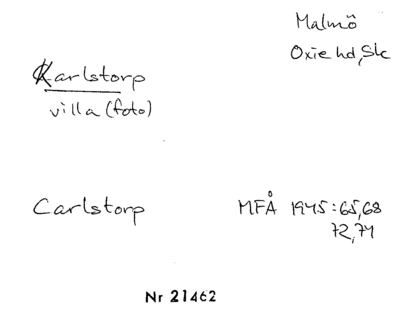 Malmö
Oxie hd, Sk
Karlstorp
villa (foto)
Carlstorp
MFÅ 1945:65,68
72,71
Nr 21462